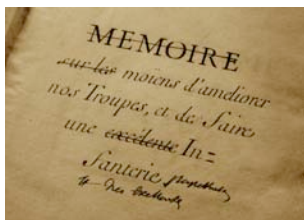 MEMOIRE
sur les moïens d'ameliorer
nos Troupes, et de faire
une excelente In=
fanterie